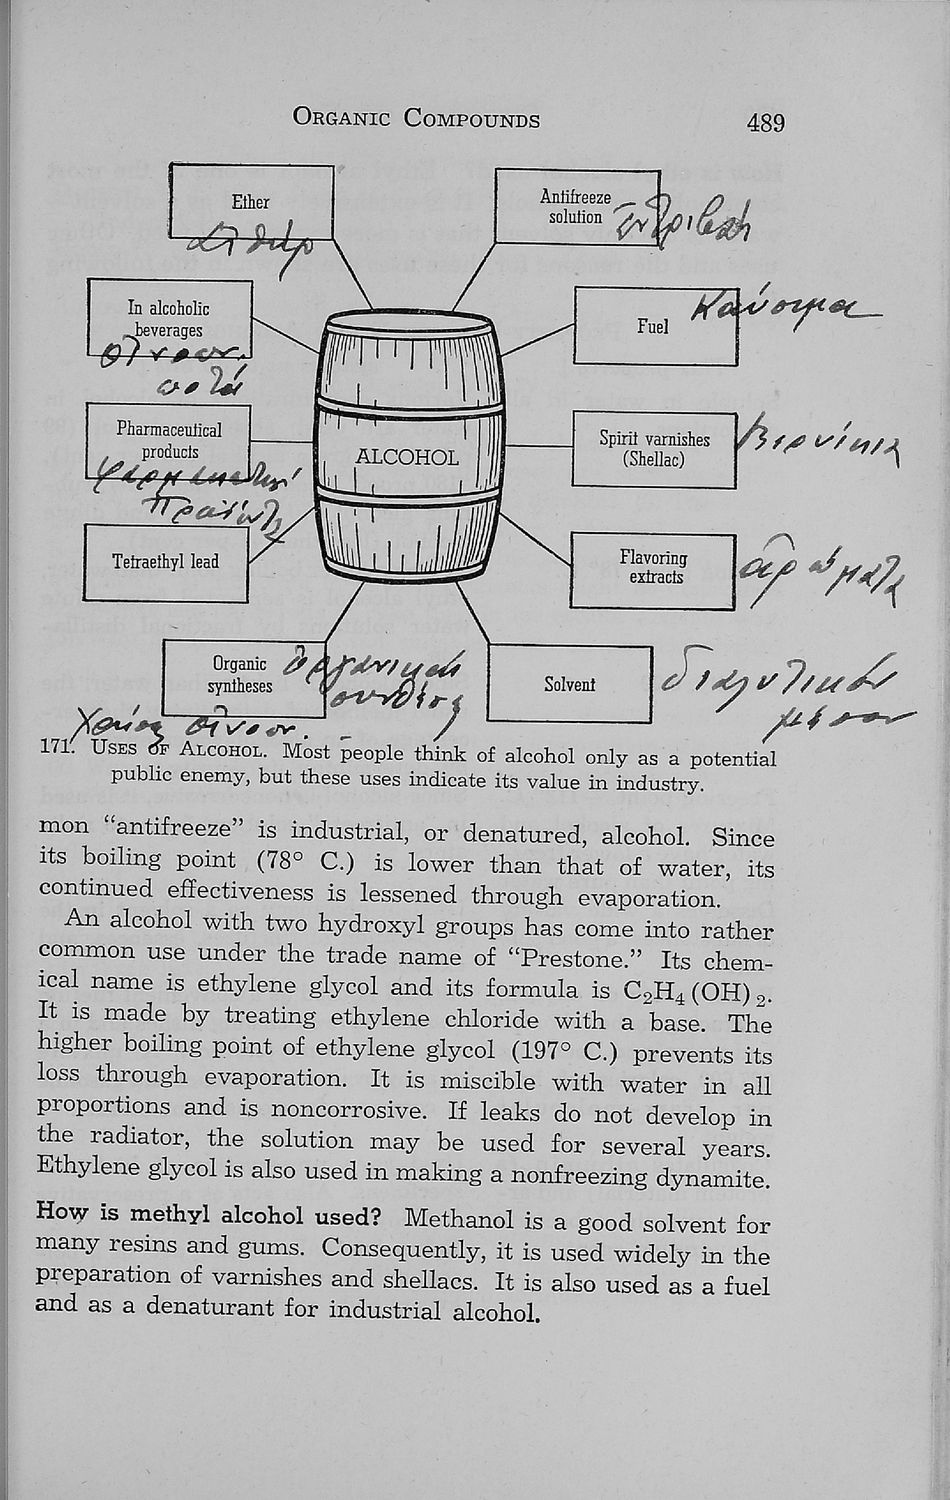 ORGANIC COMPOUNDS 489
Ether
Antifreeze
solution
In alcoholic
beverages
οἰνοπν.
ποτά
Fuel
Καύσιμα
Pharmaceutical
products
Προϊόντα
Spirit varnishes
(Shellac)
Βερνίκια
ALCOHOL
Tetraethyl lead
Flavoring
extracts
ἀρώματα
Organic
syntheses
ὀργανικαί
συνθέσεις
Solvent
διαλυτικόν
μέσον
Χρήσις οἰνοπν.
171. USES OF ALCOHOL. Most people think of alcohol only as a potential
public enemy, but these uses indicate its value in industry.
mon “antifreeze” is industrial, or denatured, alcohol. Since
its boiling point (78° C.) is lower than that of water, its
continued effectiveness is lessened through evaporation.
An alcohol with two hydroxyl groups has come into rather
common use under the trade name of “Prestone.” Its chem-
ical name is ethylene glycol and its formula is C₂H₄(OH)₂.
It is made by treating ethylene chloride with a base. The
higher boiling point of ethylene glycol (197° C.) prevents its
loss through evaporation. It is miscible with water in all
proportions and is noncorrosive. If leaks do not develop in
the radiator, the solution may be used for several years.
Ethylene glycol is also used in making a nonfreezing dynamite.
How is methyl alcohol used? Methanol is a good solvent for
many resins and gums. Consequently, it is used widely in the
preparation of varnishes and shellacs. It is also used as a fuel
and as a denaturant for industrial alcohol.